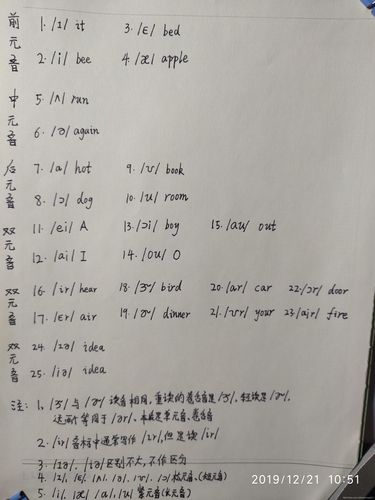 前元音 1. /ɪ/ it 3. /ɛ/ bed
2. /i/ bee 4. /æ/ apple
中元音 5. /ʌ/ run
6. /ə/ again
后元音 7. /a/ hot 9. /ʊ/ book
8. /ɔ/ dog 10. /u/ room
双元音 11. /ei/ A 13. /ɔi/ boy 15. /aʊ/ out
12. /ai/ I 14. /oʊ/ O
双元音 16. /ir/ hear 18. /ɝ/ bird 20. /ar/ car 22. /ɔr/ door
17. /ɛr/ air 19. /ɚ/ dinner 21. /ʊr/ your 23. /air/ fire
双元音 24. /ɪə/ idea
25. /iə/ idea
注: 1. /ɝ/ 与 /ɚ/ 读音相同,重读的卷舌音是/ɝ/,轻读是/ɚ/,
这两个等同于/ər/、本质是单元音、卷舌音
2. /ir/音标中通常写作/ɪr/,但是读/ir/
3. /ɪə/、/iə/区别不大,不作区分
4. /ɪ/、/ɛ/ /ʌ/、/ə/、 /ʊ/、/ɔ/ (短元音)
5. /i/、/æ/ /a/、/u/ 紧元音(长元音)
2019/12/21 10:51